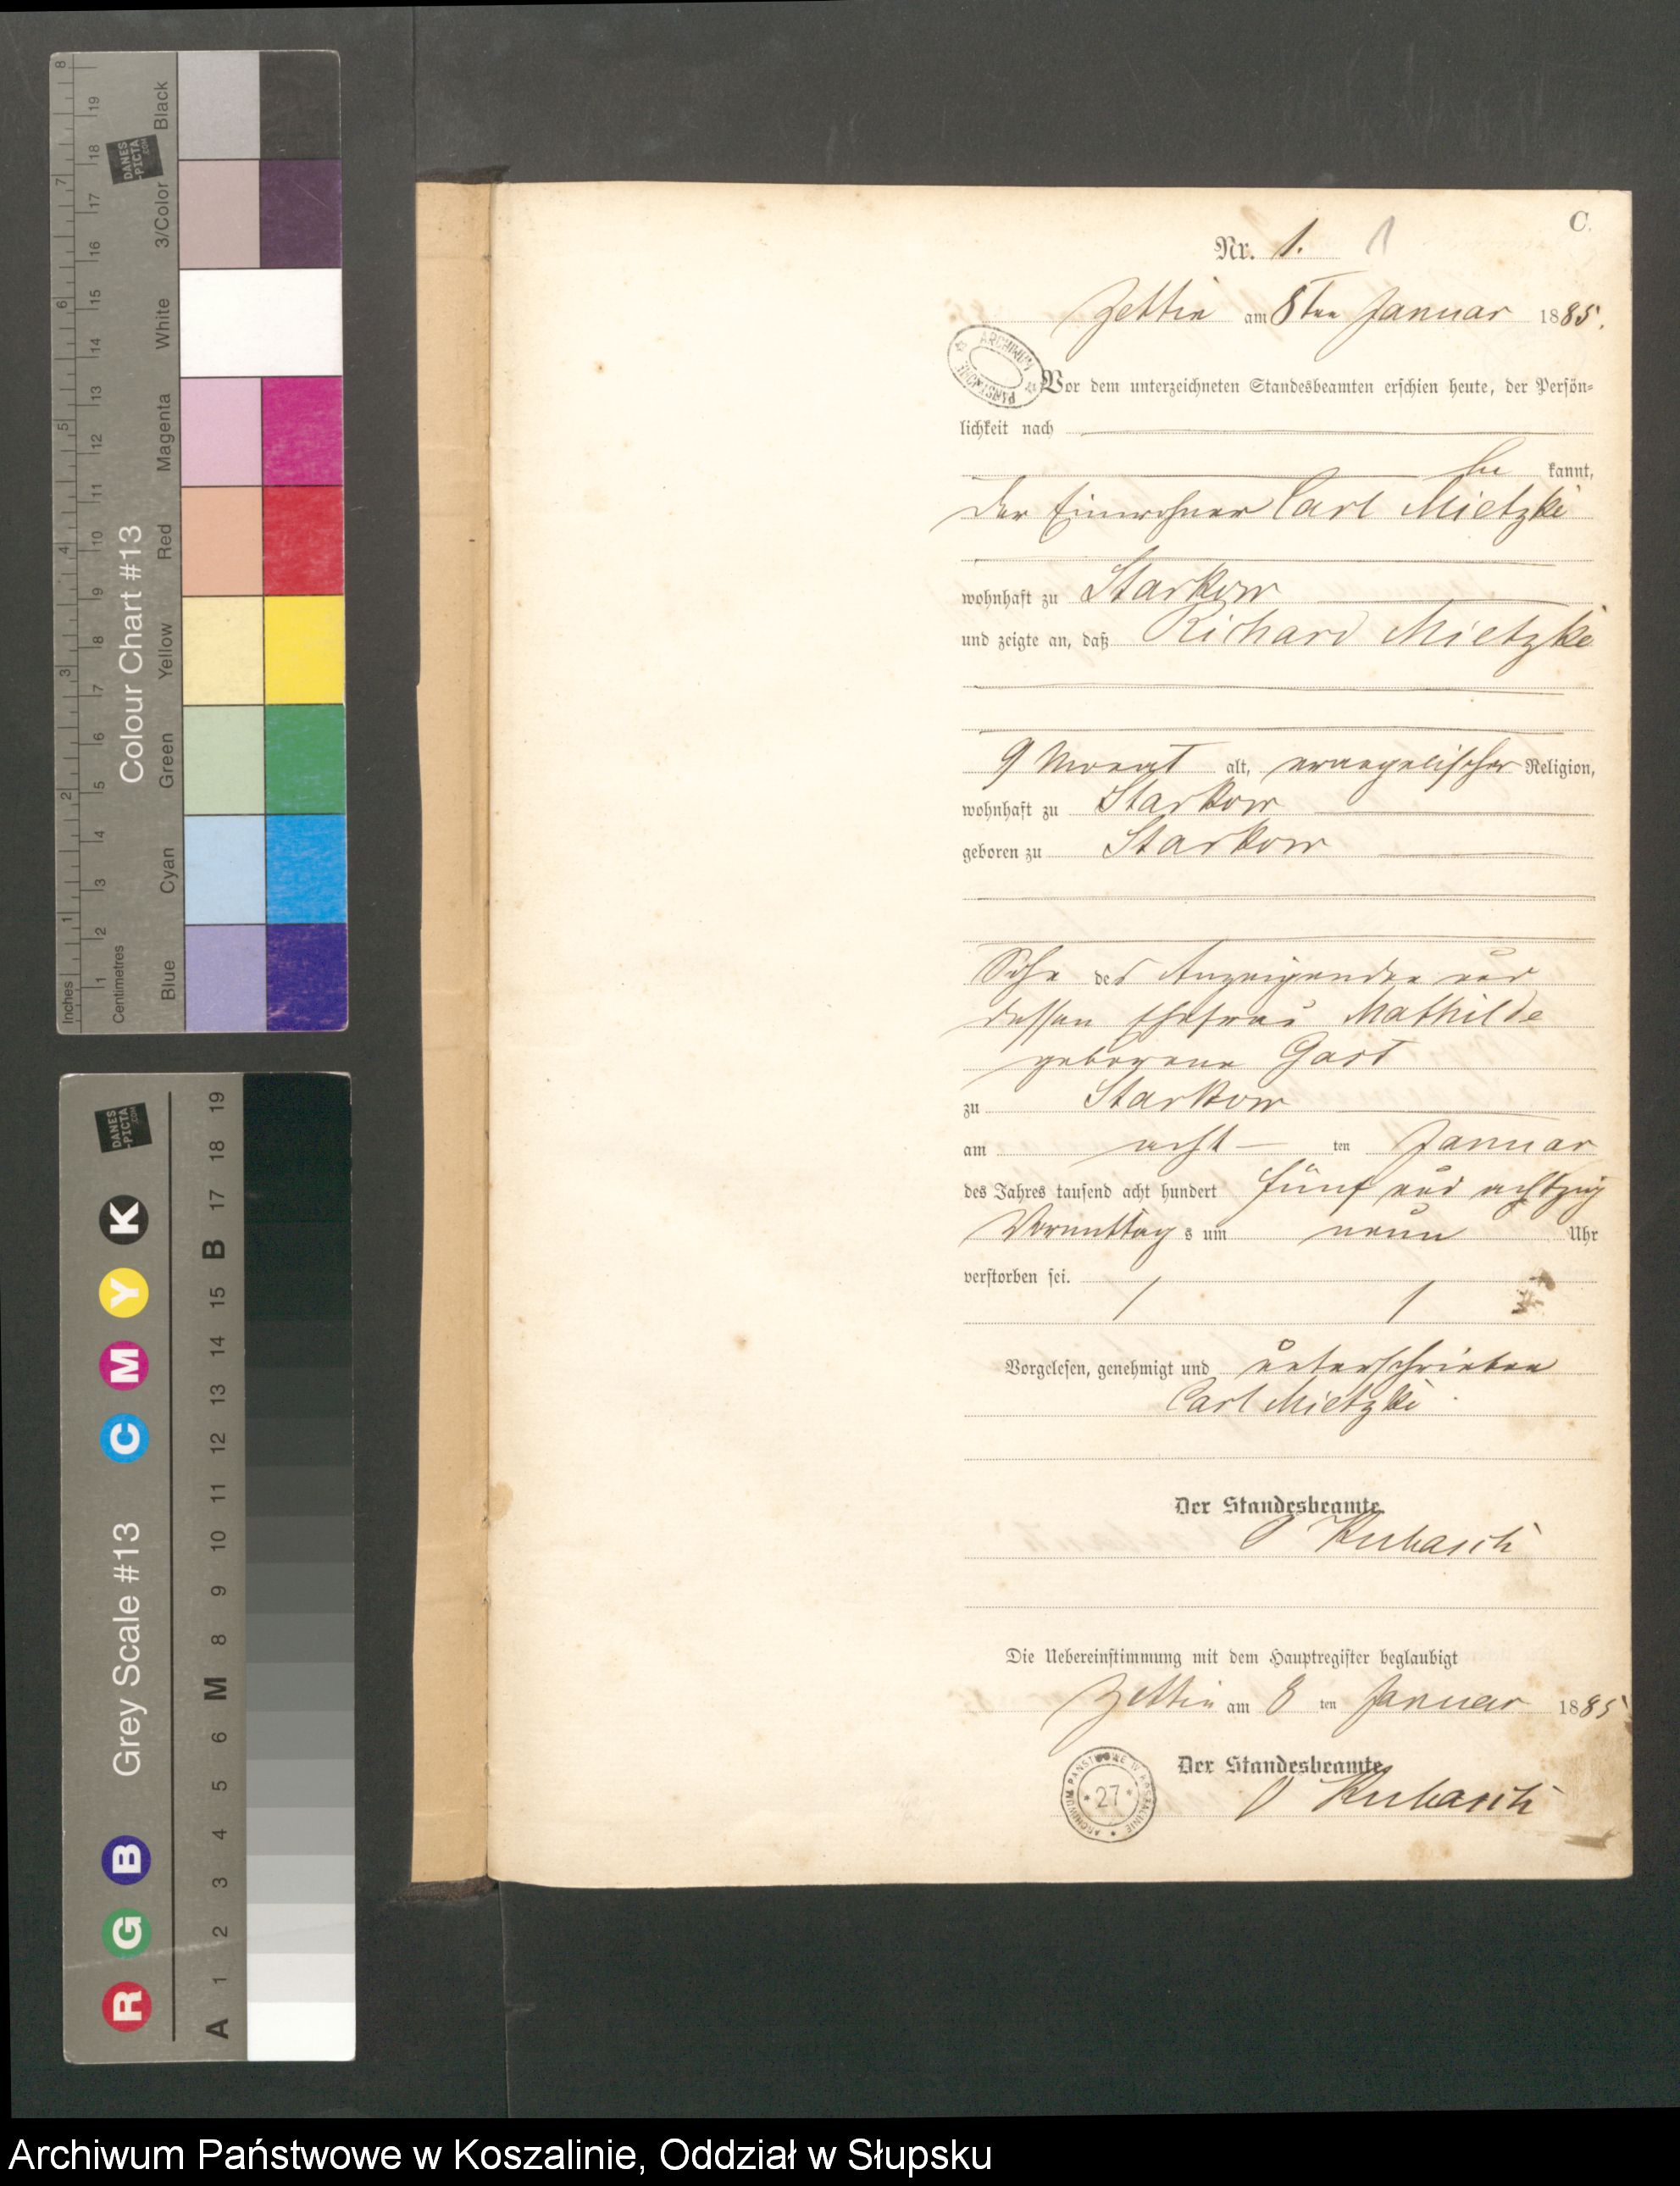 8
7
6
5
4
3
2
1
Inches
19
18
17
16
15
14
13
12
11
10
9
8
7
6
5
4
3
2
1
Centimetres
Colour Chart #13
DANES
-PICTA
.COM
Black
3/Color
White
Magenta
Red
Yellow
Green
Cyan
Blue
DANES
-PICTA
.COM
Grey Scale #13
R G B C M Y K
A 1 2 3 4 5 6 M 8 9 10 11 12 13 14 15 B 17 18 19
C.
Nr. 1. 1
Zettin am 8ten Januar 1885.
ARCHIWUM PAŃSTWOWE
Vor dem unterzeichneten Standesbeamten erschien heute, der Persön-
lichkeit nach
be kannt,
der Einwohner Carl Mietzki
wohnhaft zu Starkow
und zeigte an, daß Richard Mietzki
9 Monat alt, evangelischer Religion,
wohnhaft zu Starkow
geboren zu Starkow
Sohn des Anzeigenden und
dessen Ehefrau Mathilde
geborene Gast
zu Starkow
am acht ten Januar
des Jahres tausend acht hundert fünf und achtzig
Vormittag s um neun Uhr
verstorben sei.
Vorgelesen, genehmigt und unterschrieben
Carl Mietzki
Der Standesbeamte
Kubasch
Die Uebereinstimmung mit dem Hauptregister beglaubigt
Zettin am 8 ten Januar 1885
Der Standesbeamte
Kubasch
ARCHIWUM PAŃSTWOWE W KOSZALINIE
* 27 *
Archiwum Państwowe w Koszalinie, Oddział w Słupsku